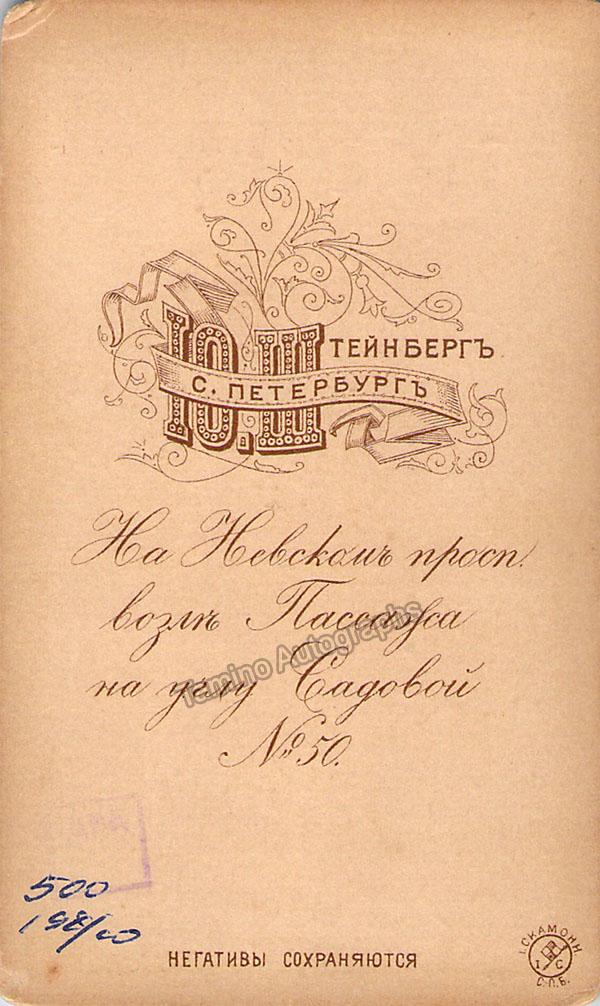 Ю. ШТЕЙНБЕРГЪ
С. ПЕТЕРБУРГЪ
На Невскомъ просп.
возлѣ Пассажа
на углу Садовой
№ 50.
Tamino Autographs
500
НЕГАТИВЫ СОХРАНЯЮТСЯ
І. СКАМОНИ.
I C
С.П.Б.